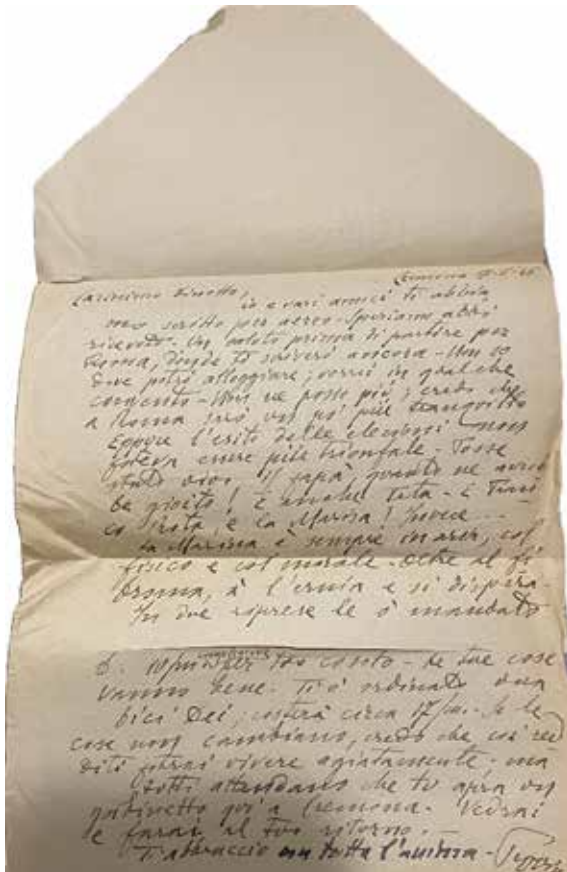 Cremona
Carissimo
io e vari amici ti abbia
mo scritto per aereo - Speriamo abbi
ricevuto. Un saluto prima di partire per
Roma, donde ti scriverò ancora - Non so
dove potrò alloggiare; vorrei in qualche
convento - Non ne posso più; credo che
a Roma sarò un po' più tranquillo
Eppure l'esito delle elezioni non
poteva essere più trionfale - Fosse
stato vivo il papà, quanto ne avreb
be gioito! E anche
e la Marisa! Invece
La Marisa è sempre in arer, col
fisico e col morale. Oltre al fi
broma, à l'ernia e si dispera -
In due riprese le ò mandato
per tuo conto - Le tue cose
vanno bene. Ti ò ordinato una
bici Dei; costerà circa 17/m. Se le
cose non cambiano, credo che coi red
diti potrai vivere agiatamente - ma
tutti attendano che tu apra un
gabinetto qui a Cremona. Vedrai
e farai al tuo ritorno. -
Ti abbraccio con tutta l'anima -